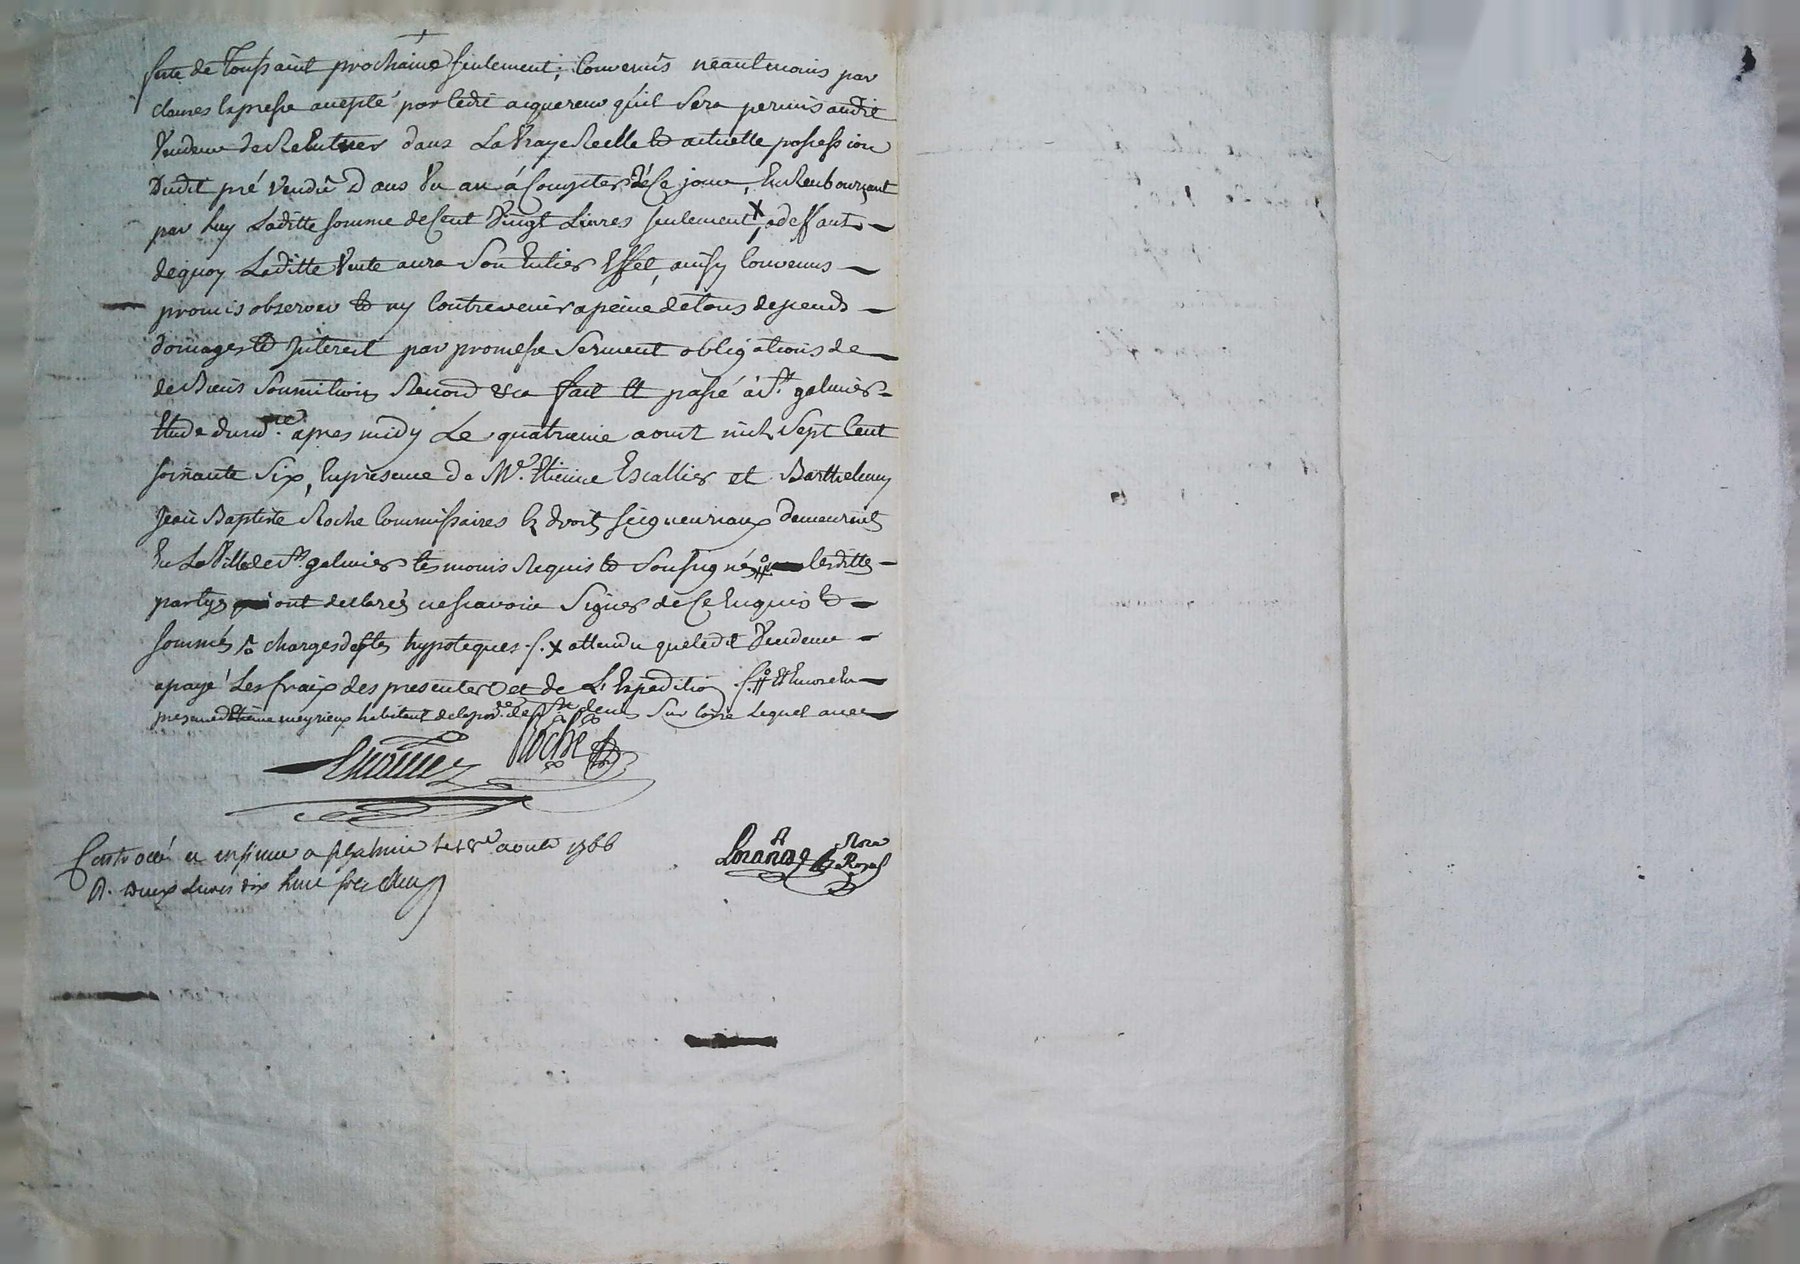 feste de Toussaint prochaine seulement; Convenus neantmoins par
clauses Expresse accepté par ledit acquereur qu'il Sera permis audit
Vendeur de Rentrer dans La Vraye Reelle et actuelle possession
Dudit pré Vendû Dans Un an á Compter de Ce jour, En Rembourçant
par luy Laditte Somme de Cent Vingt Livres seulement X, a deffaut
de quoy Laditte Vente aura Son Entier Effet, ainsy Convenus
promis observer et ny Contrevenir a peine de tous depends
domages et Jnterest par promesse Serment obligations de
de Biens Soumitions Renond &ca fait Et passé à St. galmier
Etude dud. nre. apres midy Le quatrieme aoust mil Sept Cent
soixante Six, En presence de Me. Etienne Escallier et Barthelemy
Jean Baptiste Roche Commissaires Ez droits seigneuriaux demeurants
En La Ville de St. galmier temoins Requis et Sousignés # lesdittes
partyes ont declarés ne scavoir Signer de Ce Enquis et
Sommés à charges des hypoteques ·/. x attendu que ledit Vendeur
a payé Les fraix des presentes et de L'Expedition ·/. # Et Encore En
presence d'Etienne meyrieux habitant de la psse. de Sur Loire Lequel avec
Roche
Controllé et insinué a St galmier le aoust 1766
R. deux livres dix huit sols
Nore
Royal